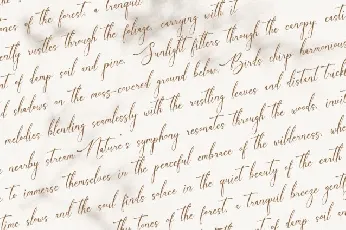 ones of the forest, a tranquil
ently rustles through the foliage, carrying with it
nt of damp soil and pine. Sunlight filters through the canopy, casti
d shadows on the moss-covered ground below. Birds chirp harmonious
melodies blending seamlessly with the rustling leaves and distant trickl
e nearby stream. Nature's symphony resonates through the woods, invit
to immerse themselves in the peaceful embrace of the wilderness, whe
time slows and the soul finds solace in the quiet beauty of the earth
tones of the forest, a tranquil breeze gentl
of damp soil an